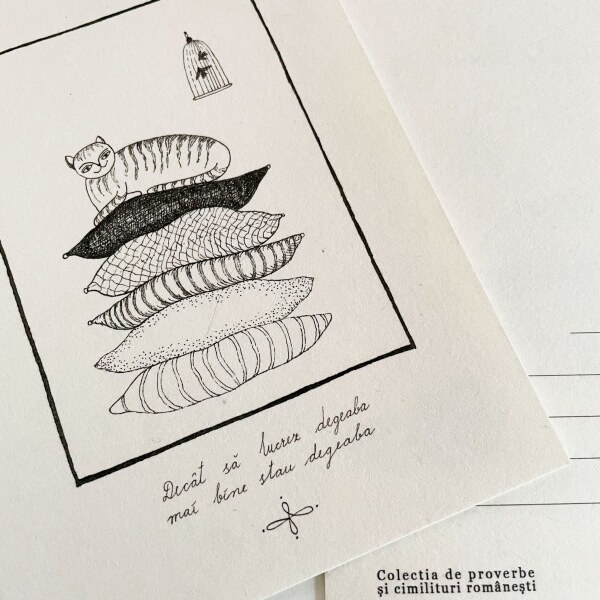 Decât să lucrez degeaba
mai bine stau degeaba
Colectia de proverbe
și cimilituri românești